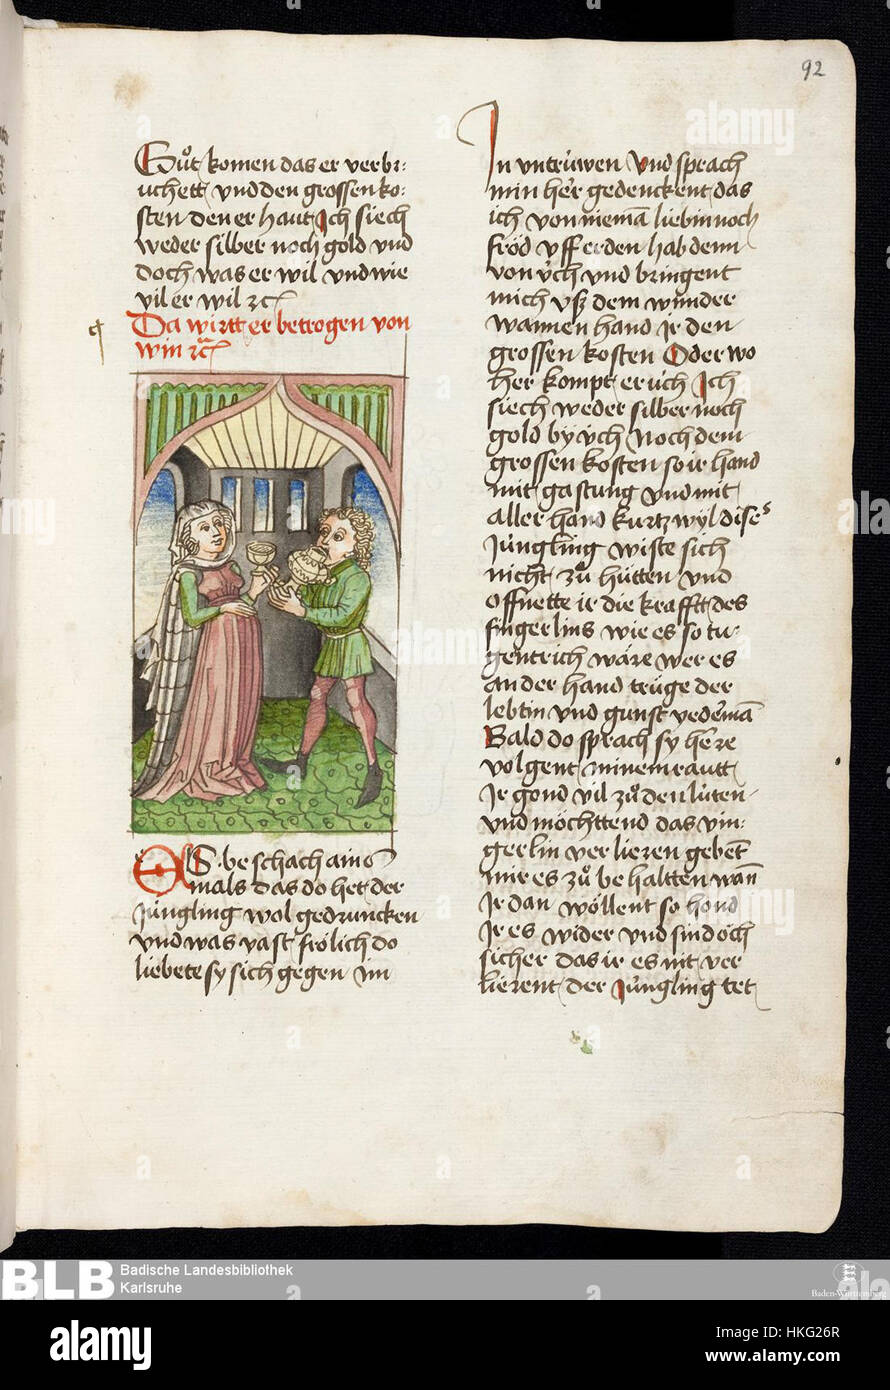 92
Guͦt komen das er verbr:
uchett vnd den grossen ko:
sten den er hautt Ich siech
weder silber noch gold vnd
doch was er wil vnd wie
vil er wil ꝛc
Da wirtt er betrogen von
win ꝛc
ALS be schach ains
mals das do het der
Jüngling wol gedruncken
vnd was vast frölich do
liebete sy sich gegen im
In vntrüwen vnd sprach
min her gedenckent das
ich von niemā liebin noch
fröd vff erden hab denn
von üch vnd bringent
mich vß dem wunder
wannen hand ir den
grossen kosten Oder wo
her kompt er üch Ich
siech weder silber noch
gold by üch Noch dem
grossen kosten so ir hand
mit gastung vnd mit
aller hand kurtzwyl diser
Jüngling wiste sich
nicht zuͦ hütten vnd
offnette ir die krafft des
fingerlins wie es so tu:
gentrich wäre wer es
an der hand trüge der
lebtin vnd gunst yedermā
Bald do sprach sy herre
volgent minem rautt
Ir gond vil zuͦ den lüten
vnd möchttend das vin:
gerlin verlieren gebent
mir es zuͦ be haltten wañ
Ir dan wöllent so hond
Ir es wider vnd sind och
sicher das ir es nit ver
lierent der Jüngling tet
BLB
Badische Landesbibliothek
Karlsruhe
Baden-Württemberg
alamy
Image ID: HKG26R
www.alamy.com